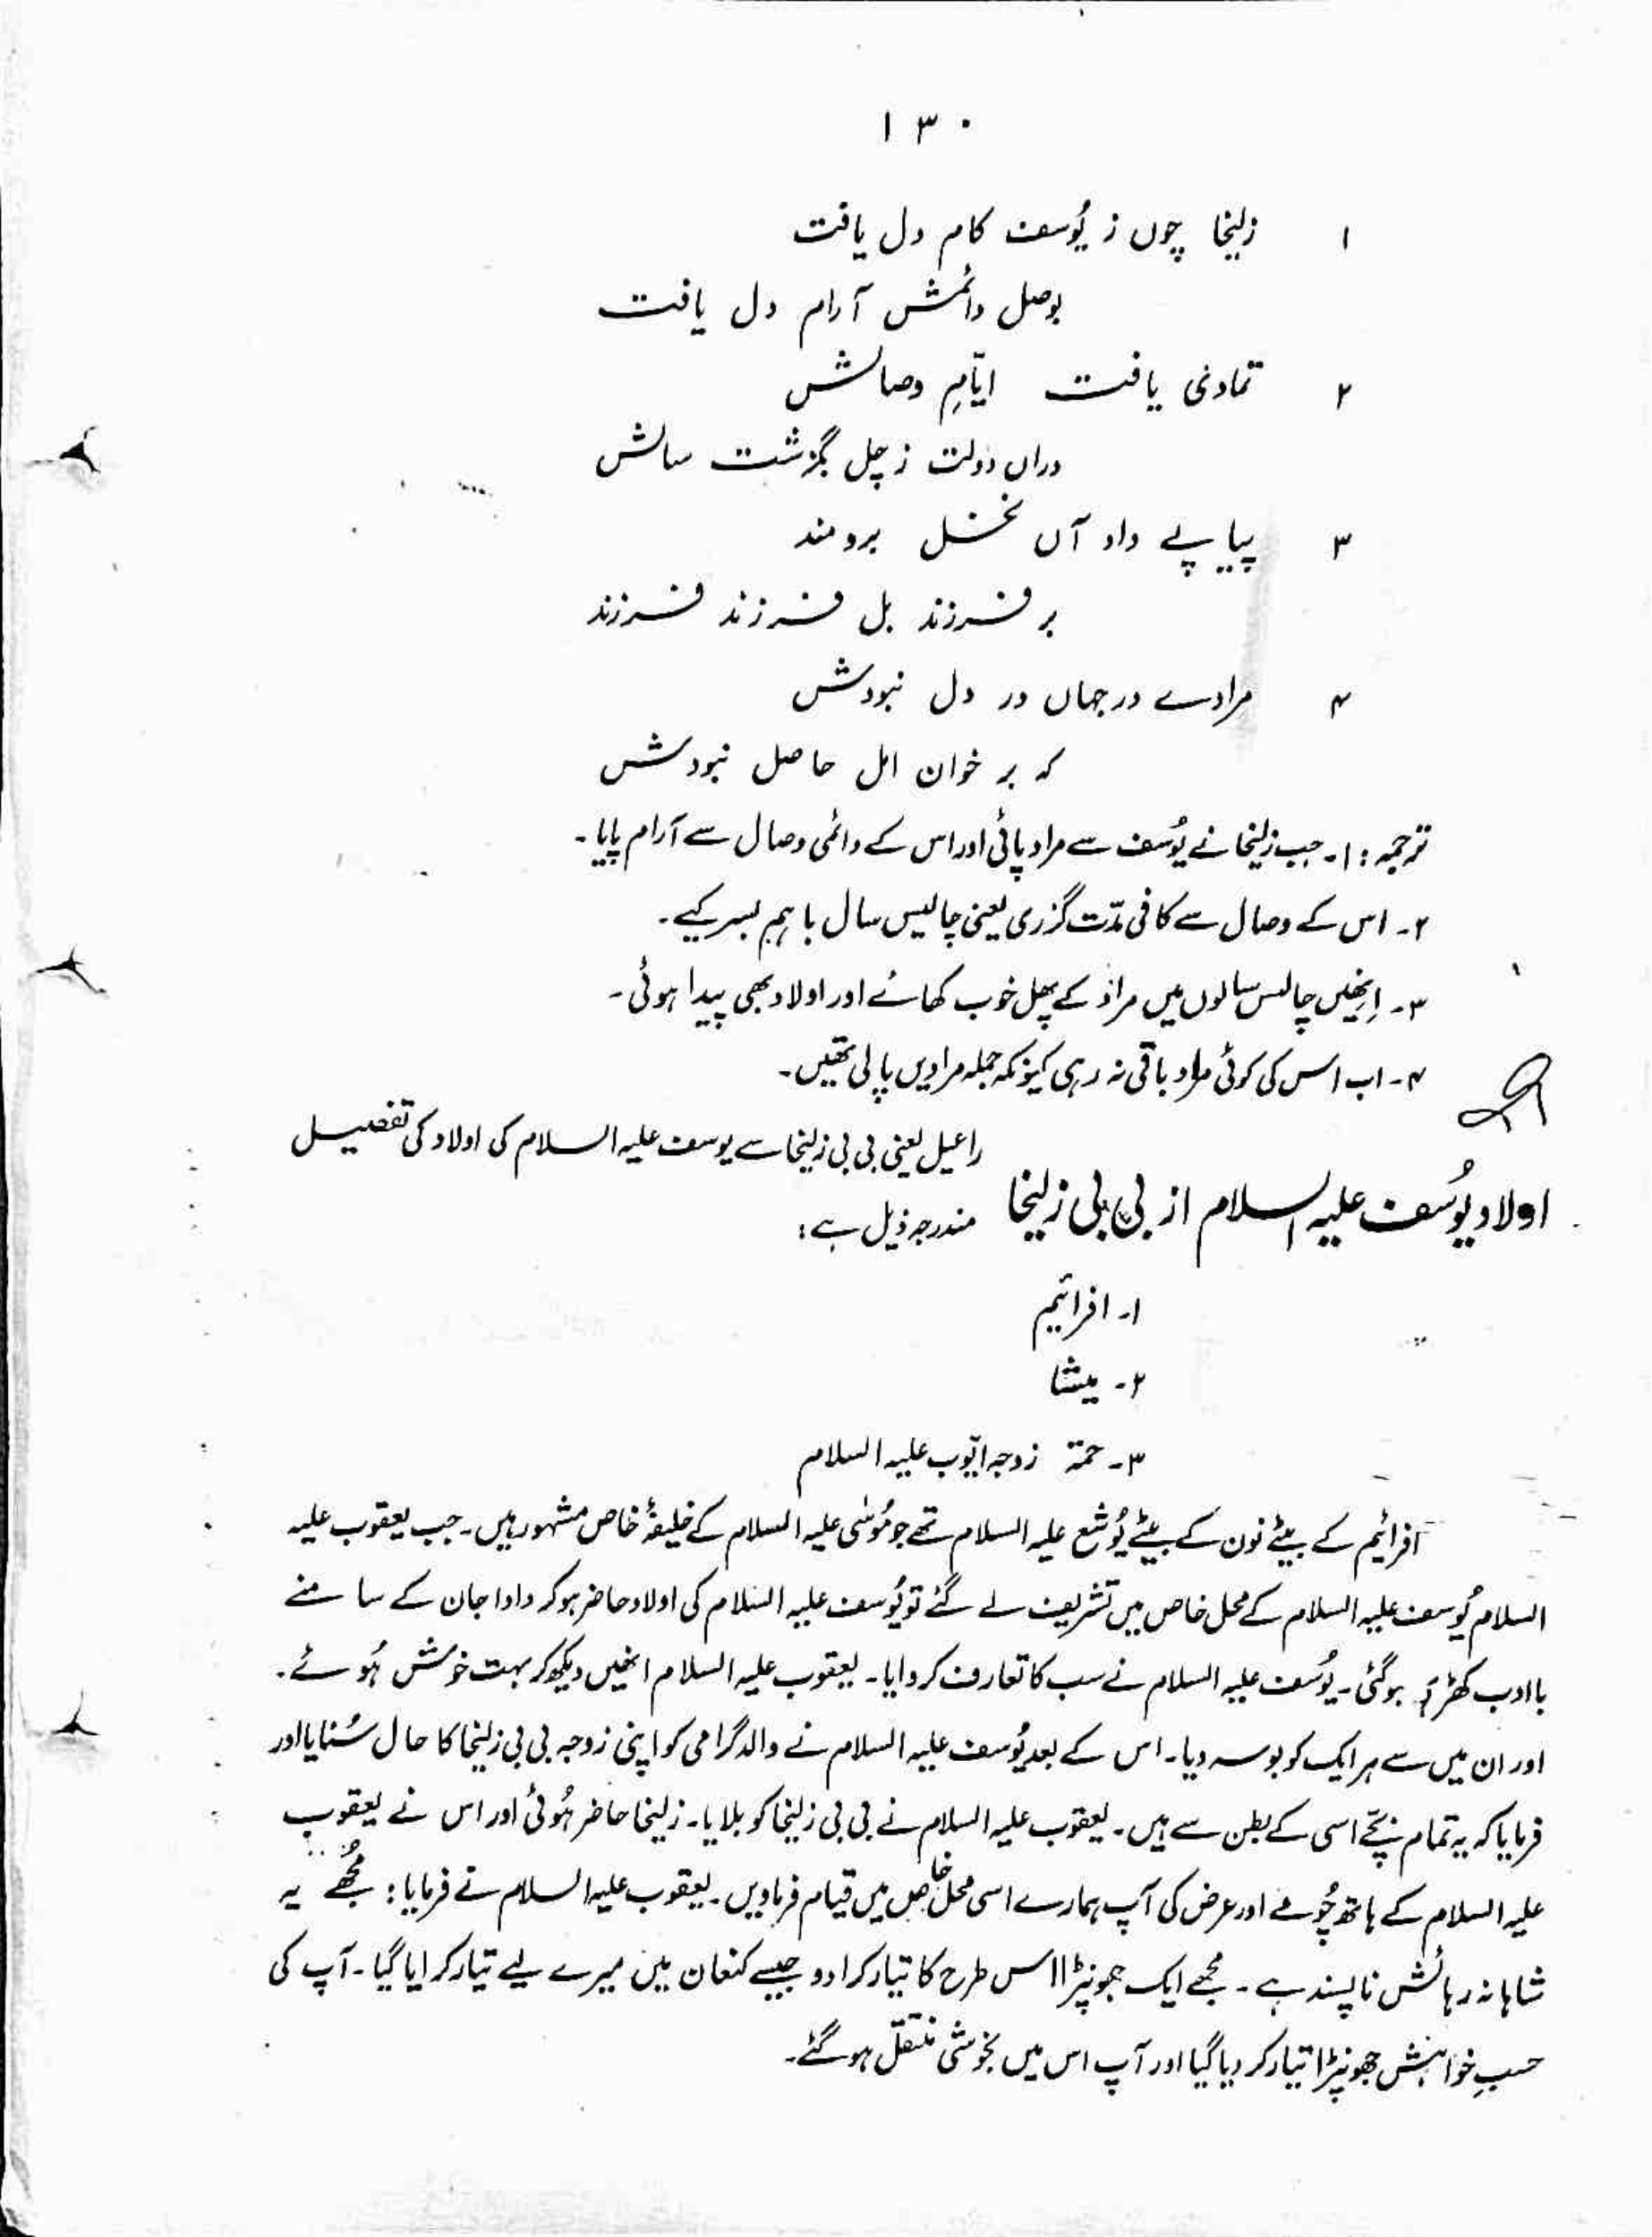 ۱۳۰
۱ زلیخا چوں ز یُوسف کام دل یافت
بوصل دائمش آرام دل یافت
۲ تمادی یافت ایّامِ وصالش
دراں دولت ز چل بگزشت سالش
۳ پیاپے داد آں نخسل برومند
بر فرزند بل فرزند فرزند
۴ مرادے در جہاں در دل نبودش
کہ بر خوان امل حاصل نبودش
ترجمہ: ۱۔ جب زلیخا نے یُوسف سے مراد پائی اور اس کے دائمی وصال سے آرام پایا۔
۲۔ اس کے وصال سے کافی مدّت گزری یعنی چالیس سال باہم بسر کیے۔
۳۔ اِنھیں چالس سالوں میں مراد کے پھل خوب کھائے اور اولاد بھی پیدا ہوئی۔
۴۔ اب اس کی کوئی مراد باقی نہ رہی کیونکہ جملہ مرادیں پا لی تھیں۔
راعیل یعنی بی بی زلیخا سے یوسف علیہ السلام کی اولاد کی تفصیل
اولاد یُوسف علیہ السلام از بی بی زلیخا مندرجہ ذیل ہے:
۱۔ افرائیم
۲۔ میشا
۳۔ حمۃ زوجہ ایّوب علیہ السلام
افرائیم کے بیٹے نون کے بیٹے یُوشع علیہ السلام تھے جو مُوسٰی علیہ السلام کے خلیفۂ خاص مشہور ہیں۔ جب یعقوب علیہ
السلام یُوسف علیہ السلام کے محل خاص میں تشریف لے گئے تو یُوسف علیہ السلام کی اولاد حاضر ہو کر دادا جان کے سامنے
باادب کھڑی ہوگئی۔ یُوسف علیہ السلام نے سب کا تعارف کروایا۔ یعقوب علیہ السلام انھیں دیکھ کر بہت خوش ہُوئے۔
اور ان میں سے ہر ایک کو بوسہ دیا۔ اس کے بعد یُوسف علیہ السلام نے والد گرامی کو اپنی زوجہ بی بی زلیخا کا حال سُنایا اور
فرمایا کہ یہ تمام بچّے اسی کے بطن سے ہیں۔ یعقوب علیہ السلام نے بی بی زلیخا کو بلایا۔ زلیخا حاضر ہُوئی اور اس نے یعقوب
علیہ السلام کے ہاتھ چُومے اور عرض کی آپ ہمارے اسی محل خاص میں قیام فرماویں۔ یعقوب علیہ السلام نے فرمایا: مُجھے یہ
شاہانہ رہائش ناپسند ہے۔ مجھے ایک جھونپڑا اس طرح کا تیار کرا دو جیسے کنعان میں میرے لیے تیار کرایا گیا۔ آپ کی
حسبِ خواہش جھونپڑا تیار کر دیا گیا اور آپ اس میں بخوشی منتقل ہوگئے۔